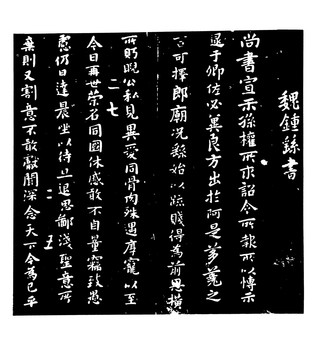 魏鍾繇書
尚書宣示孫權所求詔令所報所以博示
逮于卿佐必冀良方出於阿是芻蕘之
言可擇郎廟況繇始以疏賤得為前恩橫
所眄睨公私見異愛同骨肉殊遇厚寵以至
二七
今日再世榮名同國休慼敢不自量竊致愚
慮仍日達晨坐以待旦退思鄙淺聖意所
二五
棄則又割意不敢獻聞深念天下今為已平